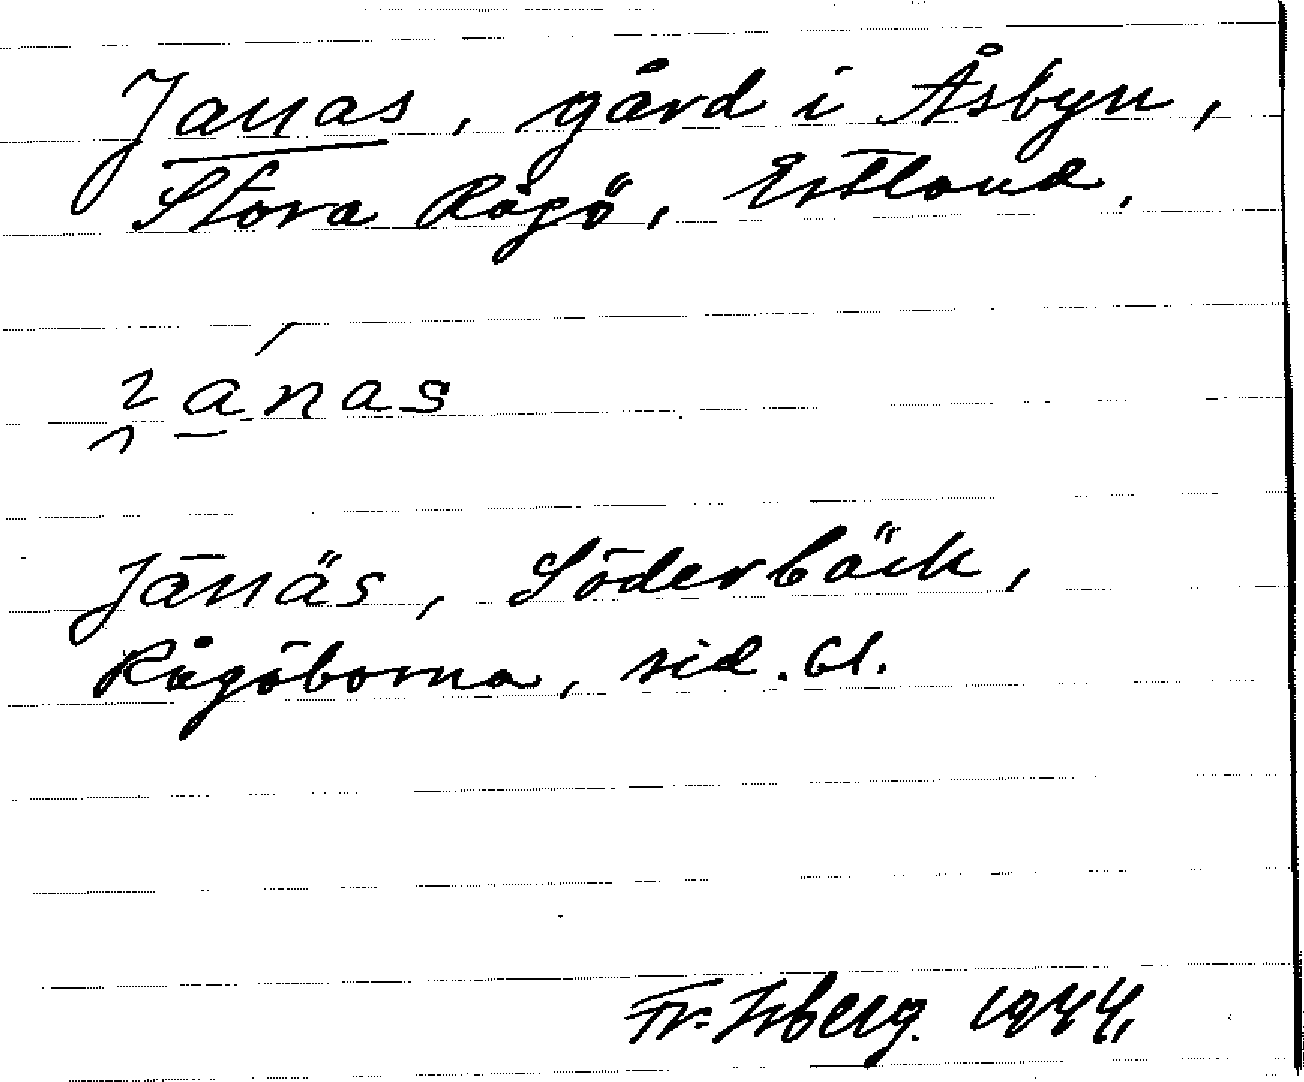 Janas, gård i Åsbyn,
Stora Rågö, Estland.
ánas
Jānäs, Söderbäck,
Rågöborna, sid. 61.
Fr. Isberg. 1944.